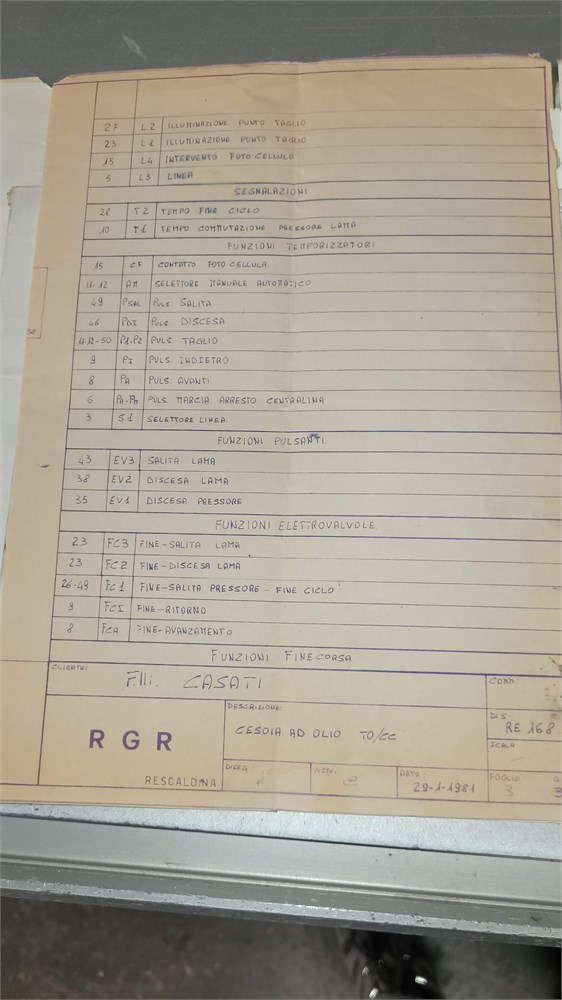 27 L2 ILLUMINAZIONE PUNTO TAGLIO
23 L1 ILLUMINAZIONE PUNTO TAGLIO
15 L4 INTERVENTO FOTO CELLULA
5 L3 LINEA
SEGNALAZIONI
28 T2 TEMPO FINE CICLO
10 T1 TEMPO COMMUTAZIONE PRESSORE LAMA
FUNZIONI TEMPORIZZATORI
15 CF CONTATTO FOTO CELLULA
11.12 AM SELETTORE MANUALE AUTOMATICO
49 PSAL PULS. SALITA
46 PDI PULS. DISCESA
11.12-50 P1-P2 PULS. TAGLIO
9 PI PULS. INDIETRO
8 PA PULS. AVANTI
6 PA-PM PULS. MARCIA ARRESTO CENTRALINA
3 S1 SELETTORE LINEA
FUNZIONI PULSANTI
43 EV3 SALITA LAMA
38 EV2 DISCESA LAMA
35 EV1 DISCESA PRESSORE
FUNZIONI ELETTROVALVOLE
23 FC3 FINE-SALITA LAMA
23 FC2 FINE-DISCESA LAMA
26-49 FC1 FINE-SALITA PRESSORE - FINE CICLO
9 FCI FINE-RITORNO
8 FCA FINE-AVANZAMENTO
FUNZIONI FINECORSA
CLIENTE:
F.lli. CASATI
COMM:
DESCRIZIONE:
CESOIA AD OLIO TO/CC
DIS.
RE 168
SCALA
RGR
RESCALDINA
DATA
29-1-1981
FOGLIO
3